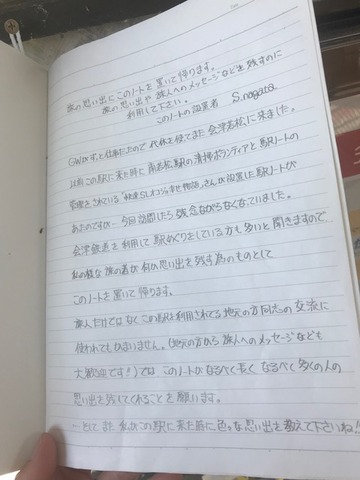 旅の思い出にこのノートを置いて帰ります。
旅の思い出や旅人へのメッセージなどを残すのに
利用して下さい。
このノートの設置者 S.nagata
GWがずっと仕事だったので代休を使ってまた会津若松に来ました。
以前この駅に来た時に南若松駅の清掃ボランティアと駅ノートの
管理をされている"快速SLオコジョ幸せ物語"さんが設置した駅ノートが
あったのですが…今回訪問したら残念ながらなくなっていました。
会津鉄道を利用して駅めぐりをしている方も多いと聞きますので
私の様な旅の者が何か思い出を残す為のものとして
このノートを置いて帰ります。
旅人だけではなくこの駅を利用されてる地元の方同志の交流に
使われてもかまいません。(地元の方から旅人へのメッセージなども
大歓迎です!)では このノートがなるべく長く なるべく多くの人の
思い出を残してくれることを願います。
…そしてまた私がこの駅に来た時に色々な思い出を教えて下さいね!!